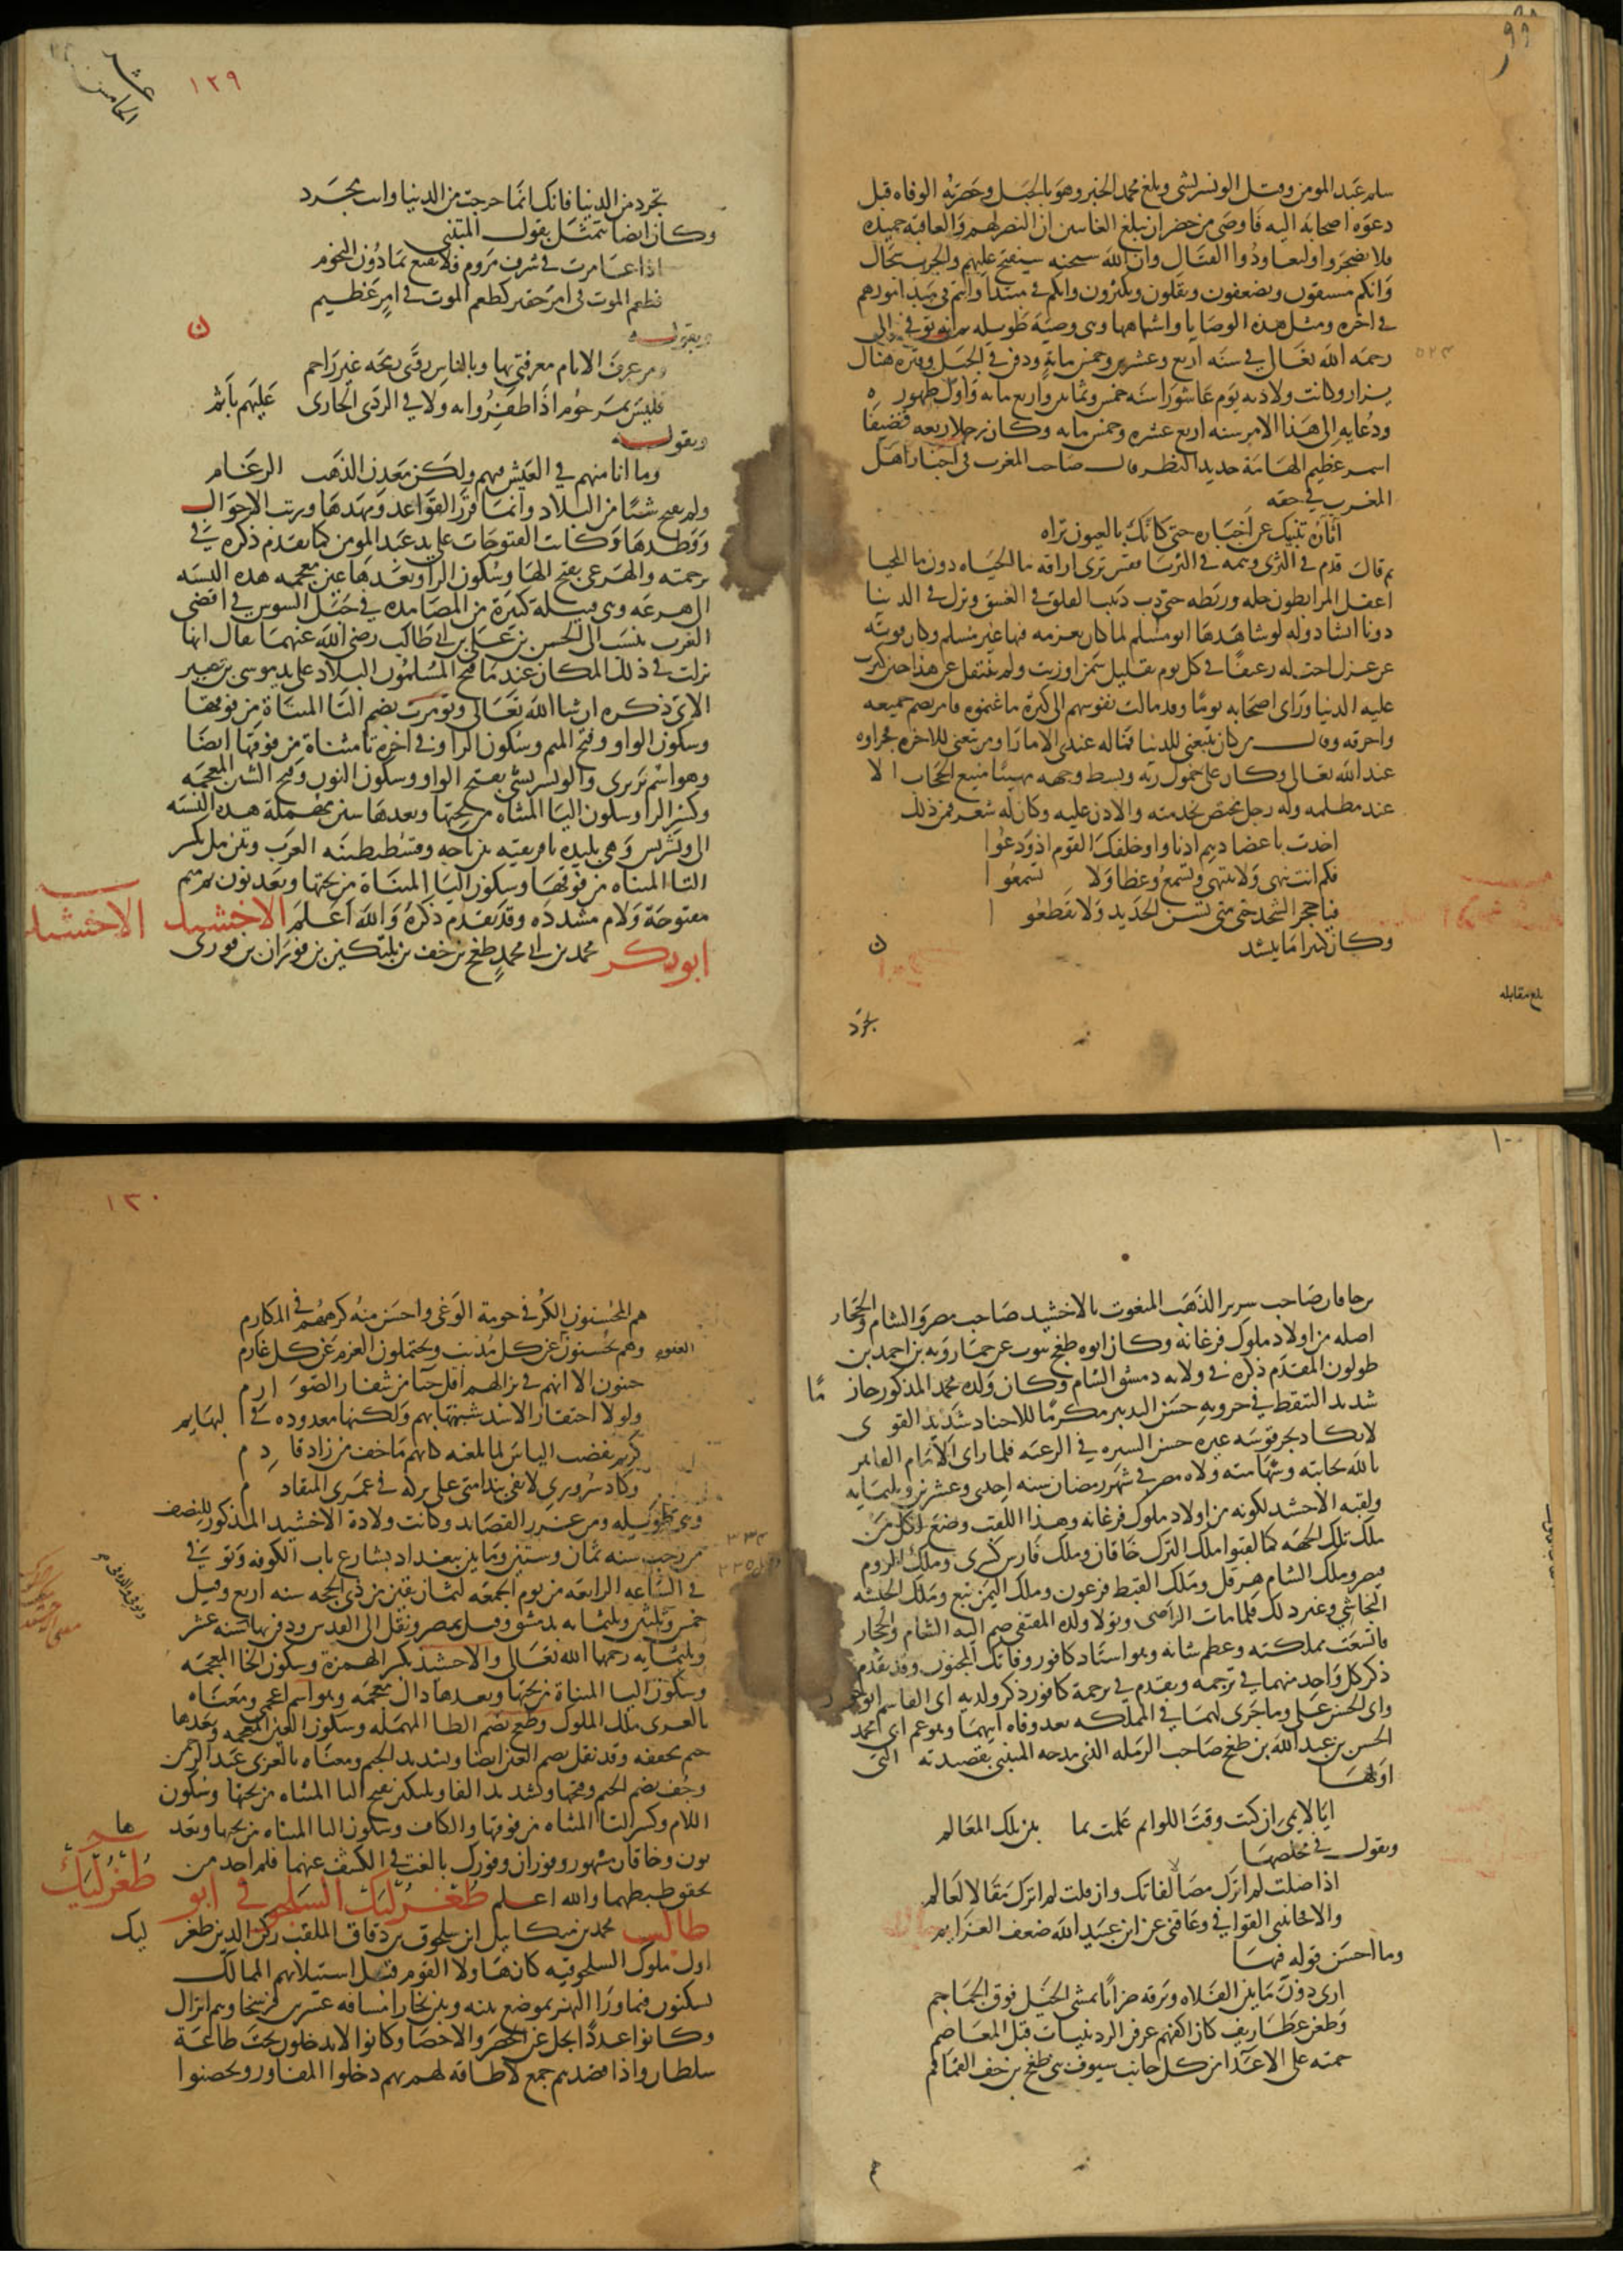 ٩٩
سلم عبد المومن وقتل الونشريشي وبلغ محمد الخبر وهو بالجبل وحضرته الوفاه قبل
دعوه اصحابه اليه فاوصى من حضر ان يبلغ الغايبين ان النصر لهم والعاقبه حميده
فلا يضجروا وليعاودوا القتال وان الله سبحنه سيفتح عليهم والحرب سجال
وانكم ستقوون ويضعفون ويقلون وتكثرون وانكم في مبتدا وانتم في مبتدا امورهم
في اخره ومثل هذه الوصايا واشباهها وهي وصية طويله ثم انه توفي الى
رحمه الله تعالى في سنه اربع وعشرين وخمس ماية ودفن في الجبل وقبره هناك
٥٢٤
يزار وكانت ولادته يوم عاشورا سنه خمس وثمانين واربع مايه واول ظهوره
ودعايه الى هذا الامر سنه اربع عشره وخمس مايه وكان رجلا ربعه قضيفا
اسمر عظيم الهامة حديد النظر قال صاحب المغرب في اخبار اهل
المغرب في حقه
آثاره تنبيك عن اخباره حتى كانك بالعيون تراه
ثم قال قدم في الثرى وهمه في الثريا ونفس ترى اراقه ما الحياه دون ما المحيا
اغفل المرابطون حله وربطه حتى دب دبيب الفلق في الغسق وترك في الدنيا
دويا انشا دوله لو شاهدها ابو مسلم لما كان بعزمه فيها غير مسلم وكان قوته
من غزل اخت له رغيفا في كل يوم بقليل سمن او زيت ولم ينتقل عن هذا حين كثرت
عليه الدنيا وراى اصحابه يوما وقد مالت نفوسهم الى كثرة ما غنموه فامر بضم جميعه
واحرقه وقال من كان يتبعني للدنيا فما له عندي الا ما راى ومن تبعني للاخره فجزاوه
عند الله تعالى وكان على خمول زيه وبسط وجهه مهيبا منيع الحجاب الا
عند مظلمه وله رجل مختص بخدمته والاذن عليه وكان له شعر فمن ذلك
اخذت باعضادهم اذ ناوا وخلفك القوم اذ ودعوا
فكم انت تنهى ولا تنتهي وتسمع وعظا ولا تسمعوا
فيا حجر الشحذ حتى متى تسن الحديد ولا تقطعوا
وكان كثيرا ما ينشد
بلغ مقابله
تجرد
١٢٩
الخامس عشر
تجرد من الدنيا فانك انما خرجت من الدنيا وانت مجرد
وكان ايضا يتمثل بقول المتنبي
اذا غامرت في شرف مروم فلا تقنع بما دون النجوم
فطعم الموت في امر حقير كطعم الموت في امر عظيم
وبقوله
ومن عرف الايام معرفتي بها وبالناس روى رمحه غير راحم
فليس بمرحوم اذا ظفروا به ولا في الردى الجاري عليهم باثم
وبقوله
وما انا منهم في العيش فيهم ولكن معدن الذهب الرغام
ولم يفتح شيئا من البلاد وانما قرر القواعد ومهدها ورتب الاحوال
ووطدها وكانت الفتوحات على يد عبد المومن كما تقدم ذكره في
ترجمته والهرغي بفتح الها وسكون الرا وبعدها غين معجمه هذه النسبه
الى هرغه وهي قبيلة كبيرة من المصامده في جبل السوس في اقصى
المغرب تنسب الى الحسن بن علي بن ابي طالب رضي الله عنهما يقال انها
نزلت في ذلك المكان عند ما فتح المسلمون البلاد على يد موسى بن نصير
الاتي ذكره ان شا الله تعالى وتومرت بضم التا المثناة من فوقها
وسكون الواو وفتح الميم وسكون الرا وفي اخره تا مثناة من فوقها ايضا
وهو اسم بربري والونشريشي بفتح الواو وسكون النون وفتح الشين المعجمه
وكسر الرا وسكون اليا المثناه من تحتها وبعدها سين مهملة هذه النسبه
الى ونشريس وهي بليده بافريقيه بين باجه وقسنطينيه العرب وتين مل بكسر
التا المثناه من فوقها وسكون اليا المثناة من تحتها وبعد نون ثم ميم
مفتوحة ولام مشدده وقد تقدم ذكره والله اعلم الاخشيد
الاخشيد
ابو بكر محمد بن ابي محمد طغج بن جف بن يلتكين بن فوران بن فوري
١٠٠
بن خاقان صاحب سرير الذهب المنعوت بالاخشيد صاحب مصر والشام والحجاز
اصله من اولاد ملوك فرغانه وكان ابوه طغج ينوب عن خمارويه بن احمد بن
طولون المقدم ذكره في ولايه دمشق الشام وكان ولده محمد المذكور حازما
شديد التيقظ في حروبه حسن التدبير مكرما للاجناد شديد القوى
لا يكاد يجر قوسه غيره حسن السيره في الرعيه فلما راى الامام القاهر
بالله نجابته وشهامته ولاه مصر في شهر رمضان سنه احدى وعشرين وثلثمايه
ولقبه الاخشيد لكونه من اولاد ملوك فرغانه وهذا اللقب وضع لكل من
ملك تلك الجهه كما لقبوا ملك الترك خاقان وملك فارس كسرى وملك الروم
قيصر وملك الشام هرقل وملك القبط فرعون وملك اليمن تبع وملك الحبشه
النجاشي وغير ذلك فلما مات الراضي وتولا ولده المقتفي ضم اليه الشام والحجاز
فاتسعت مملكته وعظم شانه وهو استاد كافور وفاتك المجنون وقد تقدم
ذكر كل واحد منهما في ترجمه وتقدم في ترجمة كافور ذكر ولديه ابي القاسم انوجور
وابي الحسن علي وما جرى لهما في المملكه بعد وفاه ابيهما وهو عم ابي محمد
الحسن بن عبيد الله بن طغج صاحب الرمله الذي مدحه المتنبي بقصيدته التي
اولها
ايا لايمي ان كنت وقت اللوايم علمت بما بين تلك المعالم
ويقول في مخلصها
اذا صلت لم اترك مصالا لفاتك وان قلت لم اترك مقالا لعالم
والا فخانتني القوافي وعاقني عن ابن عبيد الله ضعف العزايم
وما احسن قوله فيها
ارى دون ما بين الفلاه وبرقه ضرابا يمشي الخيل فوق الجماجم
وطعن غطاريف كان اكفهم عرفن الردينيات قبل المعاصم
حمته على الاعدا من كل جانب سيوف بني طغج بن جف القماقم
هم
١٣٠
هم المحسنون الكر في حومة الوغى واحسن منه كرهم في المكارم
وهم يحسنون العفو عن كل مذنب ويحتملون الغرم عن كل غارم
حييون الا انهم في نزالهم اقل حيا من شفار الصوارم
ولولا احتقار الاسد شبهتها بهم ولكنها معدوده في البهايم
كريم نفضت الناس لما بلغته كانهم ما جف من زاد قادم
وكاد سروري لا يفي بندامتي على تركه في عمري المتقادم
وهي طويله ومن غرر القصايد وكانت ولادة الاخشيد المذكور للنصف
من رجب سنه ثمان وستين ومايتين ببغداد بشارع باب الكوفه وتوفي
٣٣٤
في الساعه الرابعه من يوم الجمعه لثمان بقين من ذي الحجه سنه اربع وقيل
٣٣٥
خمس وثلثين وثلثمايه بدمشق وقيل بمصر ونقل الى القدس ودفن بها
وثلثمايه رحمهما الله تعالى والاخشيد بكسر الهمزة وسكون الخا المعجمه
وسكون اليا المثناة من تحتها وبعدها دال معجمه وهو اسم اعجمي ومعناه
بالعربي ملك الملوك وطغج بضم الطا المهمله وسكون الغين المعجمه وبعدها
جيم مخففه وقد نقل بضم الغين ايضا وتشديد الجيم ومعناه بالعربي عبد الرحمن
وجف بضم الجيم وفتحها وتشديد الفا ويلتكين بفتح اليا المثناه من تحتها وسكون
اللام وكسر التا المثناه من فوقها والكاف وسكون اليا المثناه من تحتها وبعدها
نون وخاقان مشهور وفوران وفورى بالغت في الكشف عنهما فلم اجد من
يحقق ضبطهما والله اعلم طغرلبك السلجوقي ابو
طغرلبك
طالب محمد بن ميكاييل ابن سلجوق بن دقاق الملقب ركن الدين طغرلبك
اول ملوك السلجوقيه كان هاولا القوم قبل استيلائهم الممالك
يسكنون فيما ورا النهر بموضع بينه وبين بخارا مسافه عشرين فرسخا وهم اتراك
وكانوا عددا يجل عن الحصر والاحصا وكانوا لا يدخلون تحت طاعة
سلطان واذا قصدهم جمع لا طاقه لهم بهم دخلوا المفاوز وتحصنوا